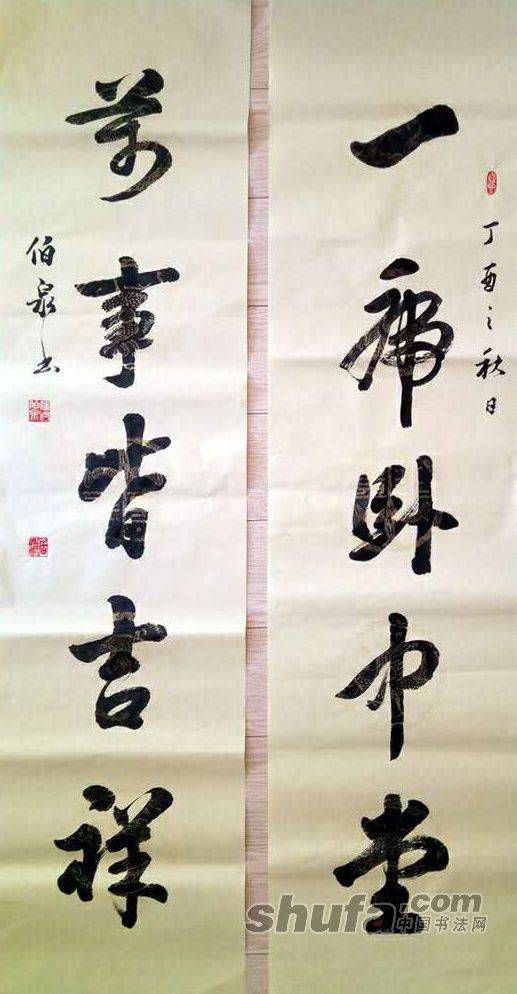 一虎卧中堂
丁酉之秋日
萬事皆吉祥
伯泉书
shufa.com
中国书法网